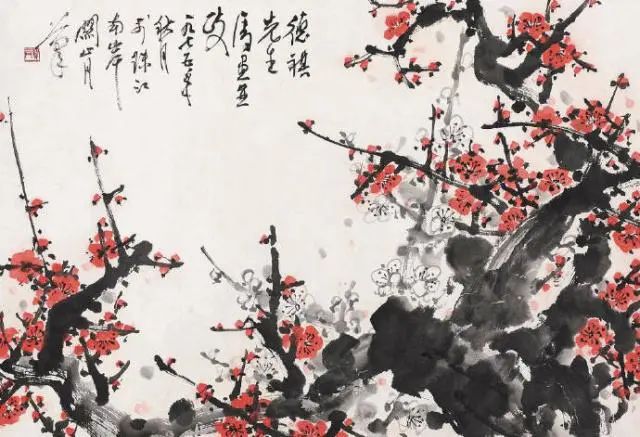 德祺
先生
属画
政
一九七五年
秋月
於珠江
南岸
關山月